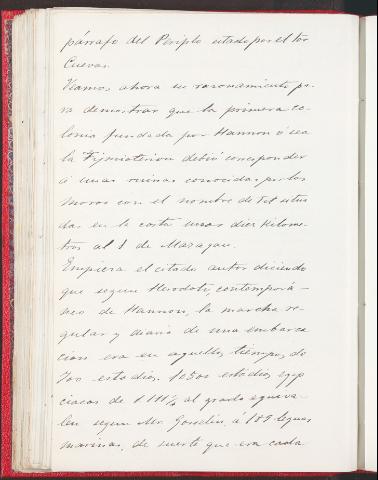 párrafo del Periplo citado por el tor
Cuevas.
Veamos ahora su razonamiento pa-
ra demostrar que la primera co-
lonia fundada por Hannon ó sea
la Fijmiaterion debió corresponder
á unas ruinas conocidas por los
moros con el nombre de Tet situa
das en la costa unos diez Kilome-
tros al S de Mazagan.
Empieza el citado autor diciendo
que segun Herodoto, contemporá-
neo de Hannon, la marcha re-
gular y diaria de una embarca
cion era en aquellos tiempos de
700 estadios. 1050 estadios egip
ciacos de 1111⅑ al grado equiva-
len segun Mr. Gosselin, á 189 leguas
marinas, de suerte que era cada